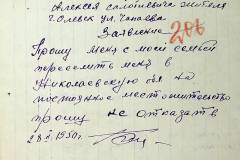 Алексея Самойловича жителя
г. Олевск ул. Чапаева
Заявление
206
Прошу меня с моей семьей
переселить меня в
Николаевскую обл на
постоянное местожительство
прошу не отказать в
28 1950 г.